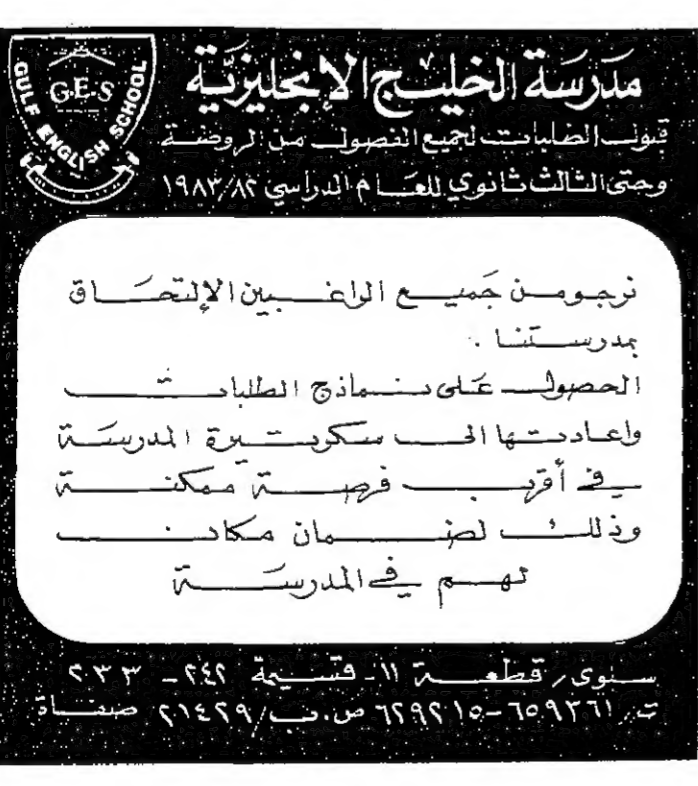 GULF ENGLISH SCHOOL
G.E.S
مدرسة الخليج الإنجليزية
قبول الطلبات لجميع الفصول من الروضة
وحتى الثالث ثانوي للعام الدراسي ١٩٨٣/٨٢
نرجو من جميع الراغبين الإلتحاق
بمدرستنا .
الحصول على نماذج الطلبات
واعادتها الى سكرتيرة المدرسة
في أقرب فرصة ممكنة
وذلك لضمان مكان
لهم في المدرسة
سلوى / قطعة ١١ - قسيمة ٢٤٢ - ٢٣٣
ت / ٦٥٩٣٦١ - ٦٢٩٢١٥ ص.ب / ٢١٤٢٩ صفاة